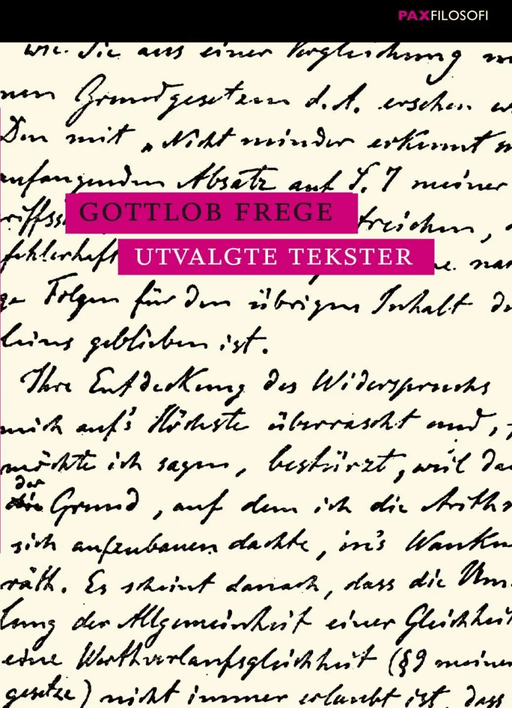 PAXFILOSOFI
wie. Sie aus einer Vergleichung
nen Grundgesetzen d. A. ersehen
Den mit „Nicht minder erkennt
anfangenden Absatz auf S. 7 meiner
riffss
GOTTLOB FREGE
streichen,
fehlerhaft
UTVALGTE TEKSTER
Folgen für den übrigen Inhalt
leins geblieben ist.
Ihre Entdeckung des Widerspruchs
mich auf's Höchste überrascht und,
möchte ich sagen, bestürzt, weil
der
Grund, auf dem ich die Arith
sich aufzubauen dachte, in's Wanken
räth. Es scheint danach, dass die Um
lung der Allgemeinheit einer Gleichheit
eine Werthverlaufsgleichheit (§9 meiner
gesetze) nicht immer erlaubt ist, dass